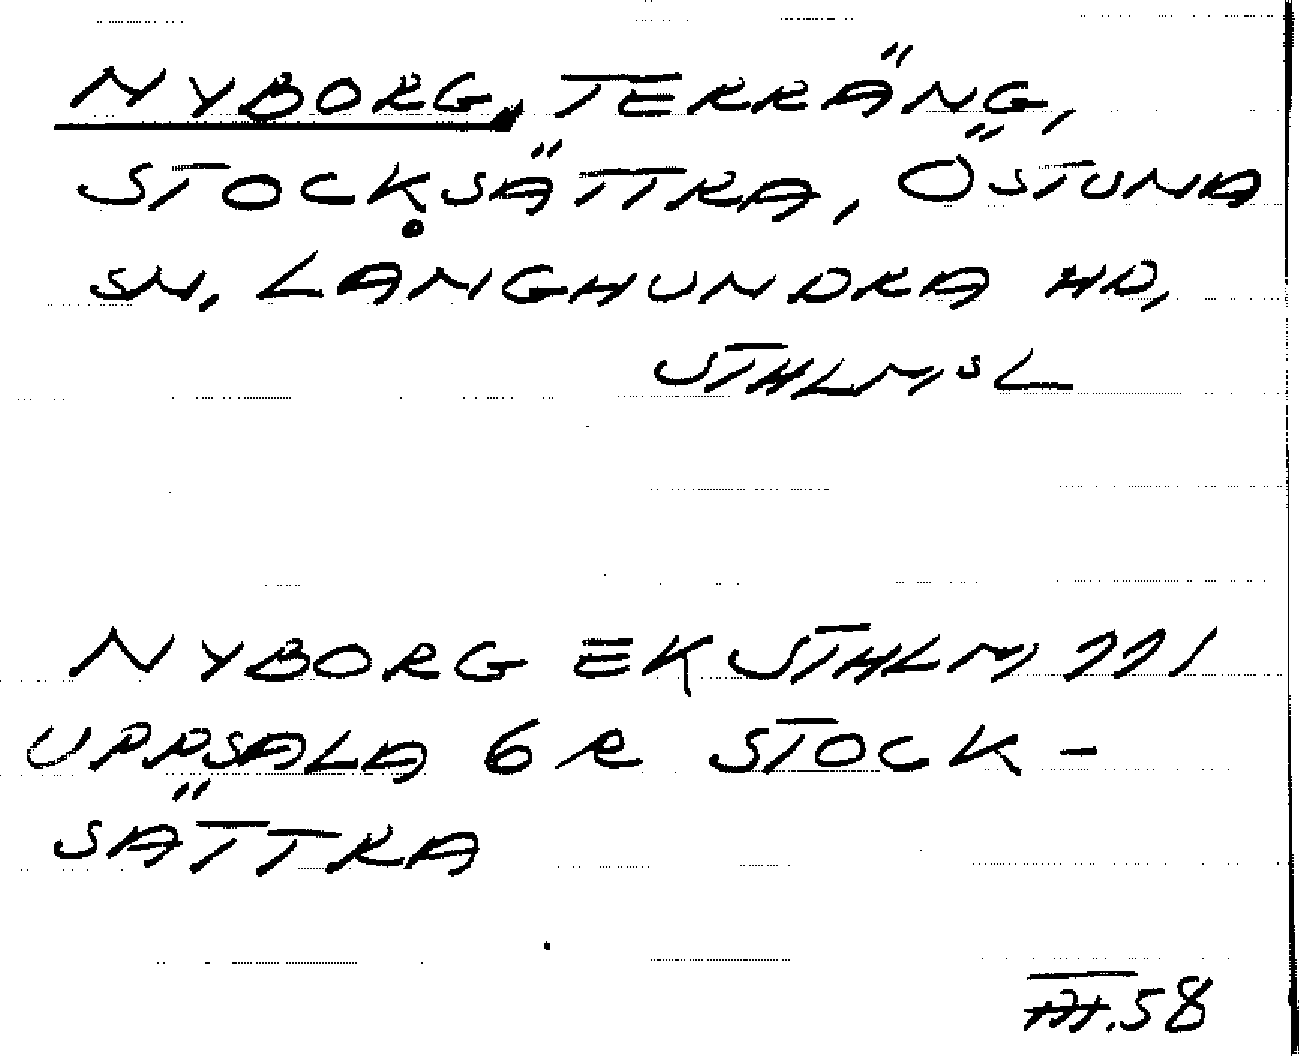 NYBORG, TERRÄNG,
STOCKSÄTTRA, ÖSTUNA
SN, LÅNGHUNDRA HD,
STHLMSL
NYBORG EK STHLM 111
UPPSALA 6 R STOCK-
SÄTTRA
58